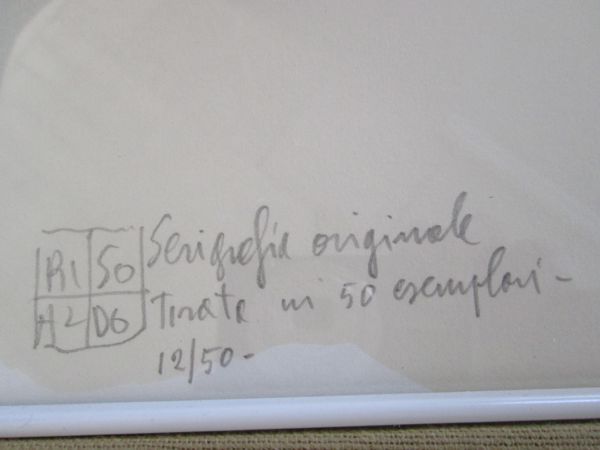 R1 50
A2 D6
Serigrafia originale
Tirata in 50 esemplari -
12/50 -